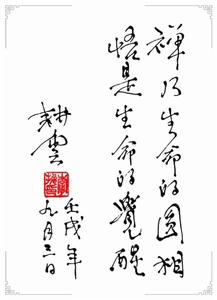 禪乃生命的圓相
悟是生命的覺醒
耕雲
壬戌年
九月三日